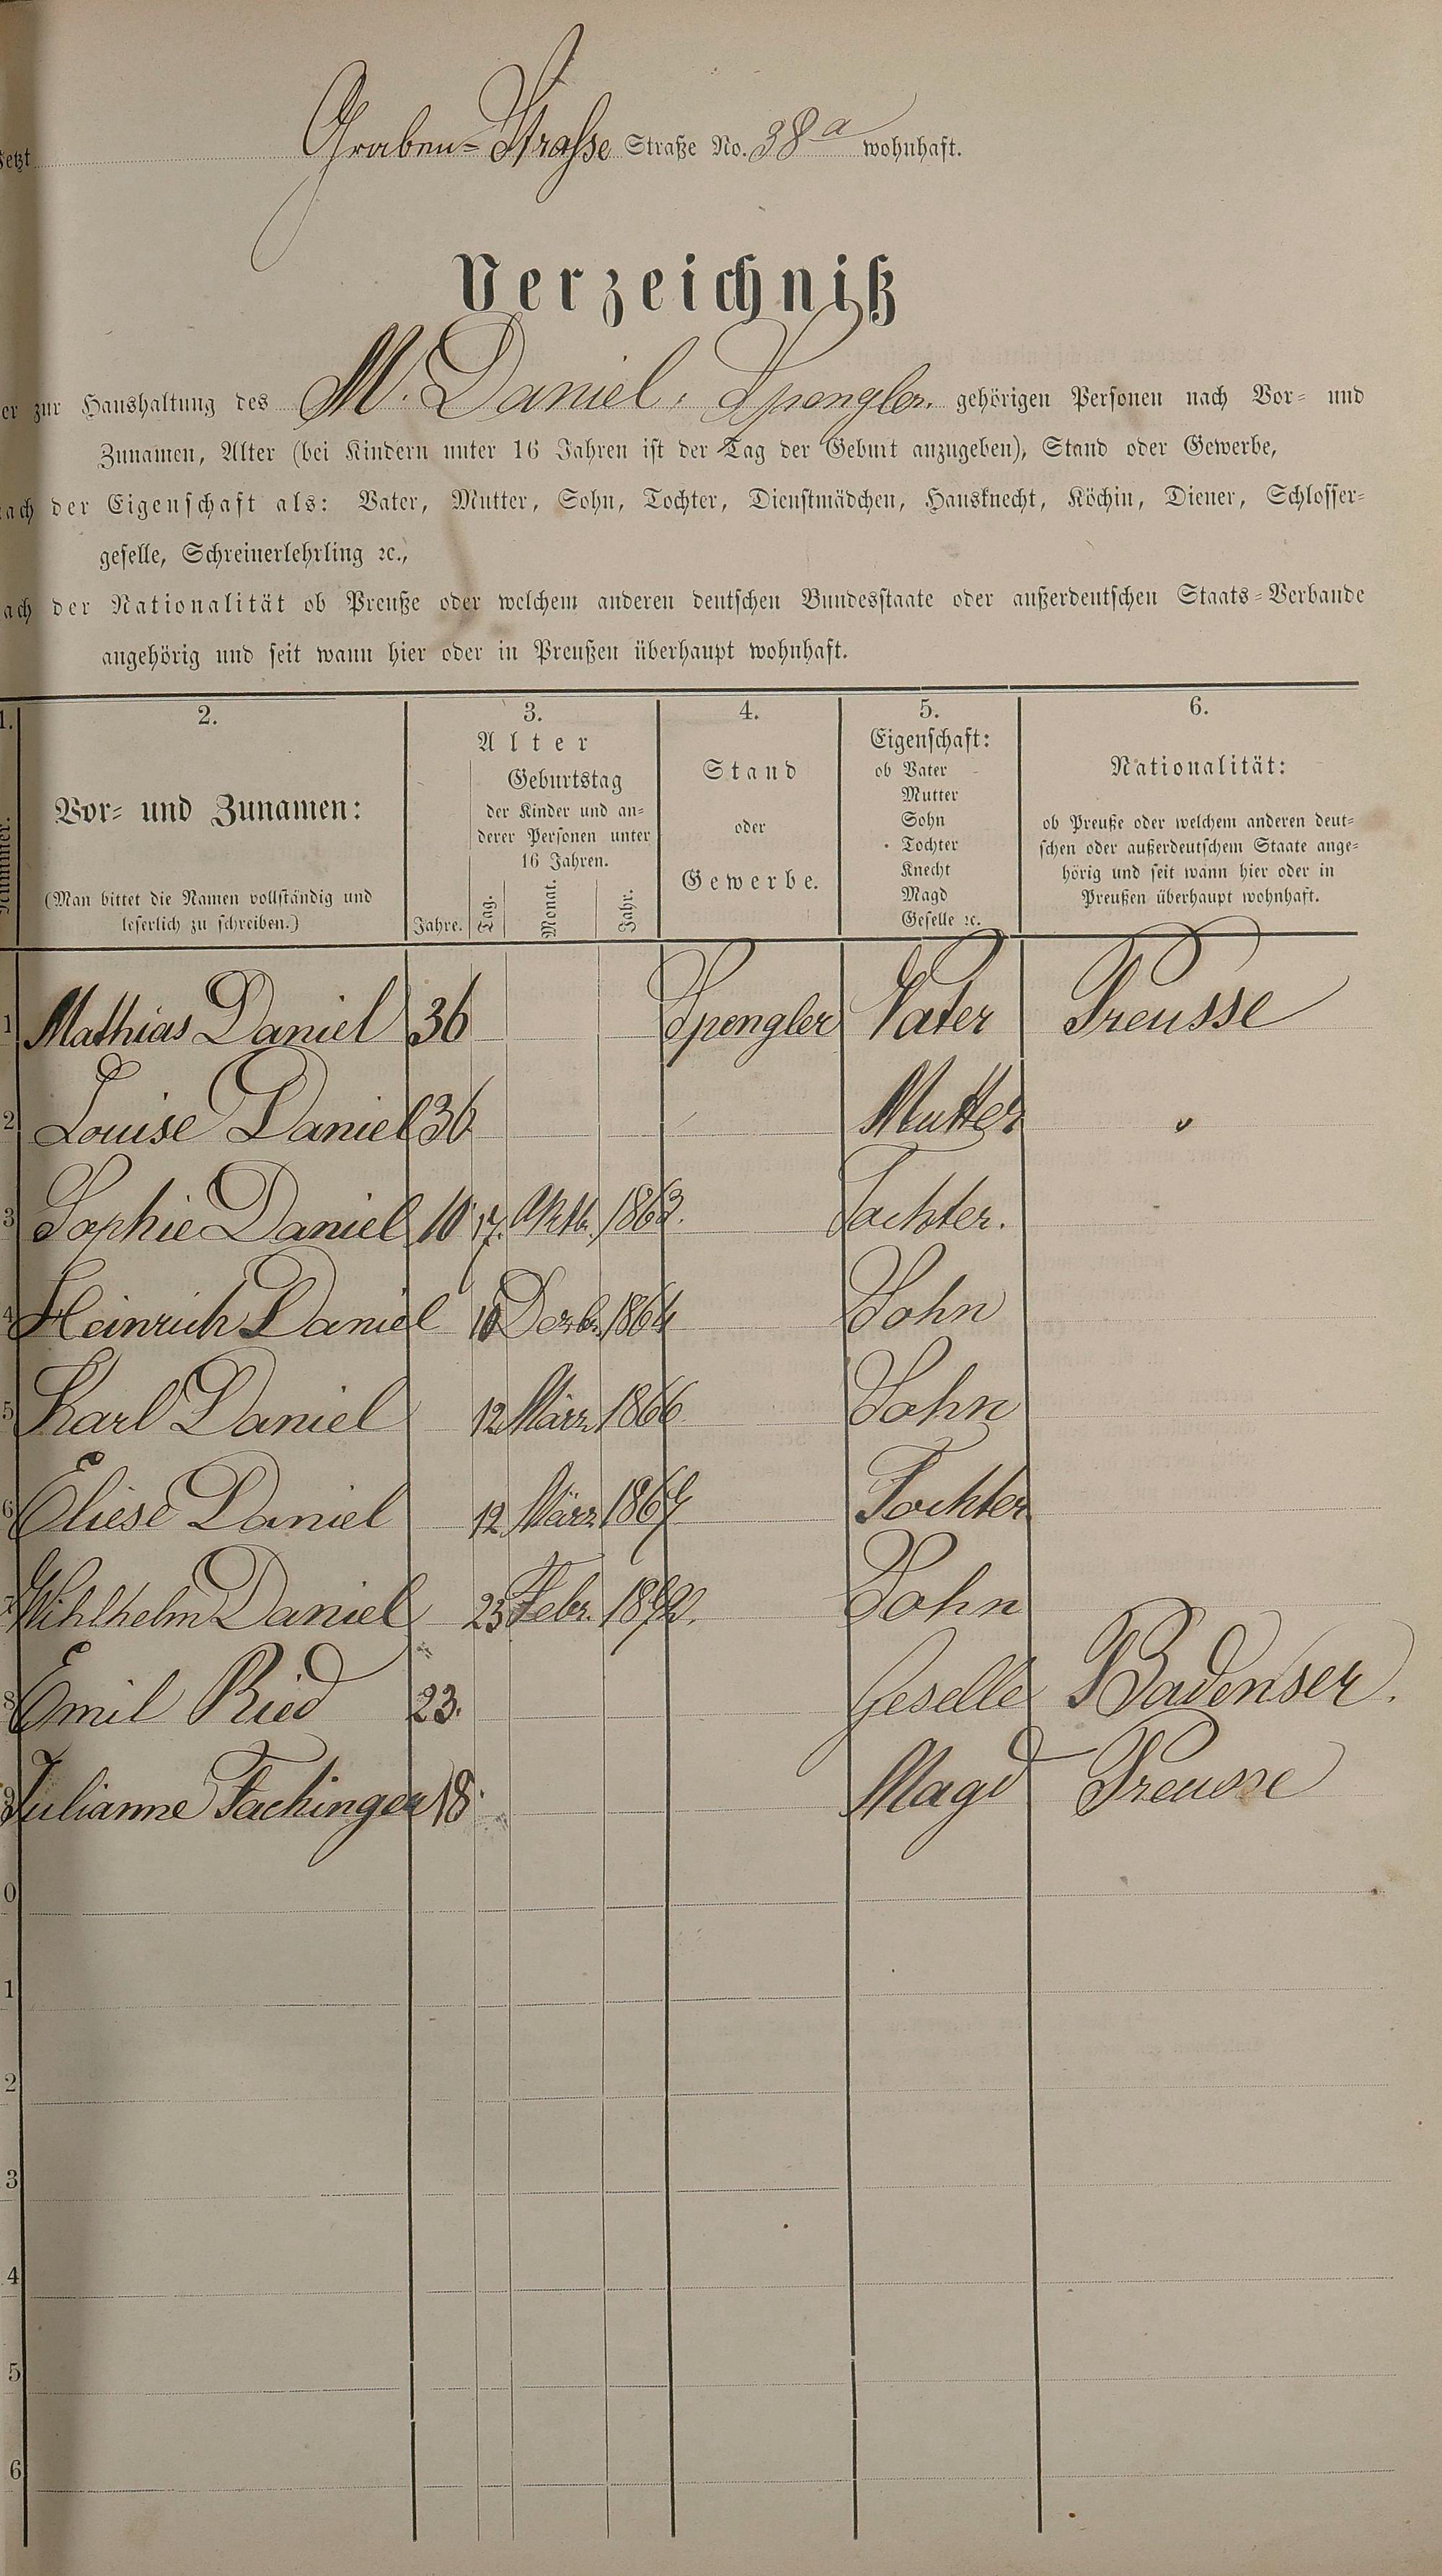 Jetzt Graben-Strasse Straße No. 38a wohnhaft.
Verzeichniß
er zur Haushaltung des M. Daniel, Spengler. gehörigen Personen nach Vor- und
Zunamen, Alter (bei Kindern unter 16 Jahren ist der Tag der Geburt anzugeben), Stand oder Gewerbe,
nach der Eigenschaft als: Vater, Mutter, Sohn, Tochter, Dienstmädchen, Hausknecht, Köchin, Diener, Schlosser-
geselle, Schreinerlehrling ꝛc.,
nach der Nationalität ob Preuße oder welchem anderen deutschen Bundesstaate oder außerdeutschen Staats-Verbande
angehörig und seit wann hier oder in Preußen überhaupt wohnhaft.
1.
Nummer.
2.
Vor- und Zunamen:
(Man bittet die Namen vollständig und
leserlich zu schreiben.)
3.
Alter
Geburtstag
der Kinder und an-
derer Personen unter
16 Jahren.
Jahre. Tag. Monat. Jahr.
4.
Stand
oder
Gewerbe.
5.
Eigenschaft:
ob Vater
Mutter
Sohn
Tochter
Knecht
Magd
Geselle ꝛc.
6.
Nationalität:
ob Preuße oder welchem anderen deut-
schen oder außerdeutschem Staate ange-
hörig und seit wann hier oder in
Preußen überhaupt wohnhaft.
1 Mathias Daniel 36 Spengler Vater Preusse
2 Louise Daniel 36 Mutter "
3 Sophie Daniel 10 17. Oktb. 1863. Tochter.
4 Heinrich Daniel 10 Dezb. 1864 Sohn
5 Karl Daniel 12 März 1866 Sohn
6 Eliese Daniel 12 März 1867 Tochter
7 Wihlhelm Daniel 23 Febr. 1872. Sohn
8 Emil Ried 23. Geselle Badenser.
9 Julianne Fachinger 18. Magd Preusse
0
1
2
3
4
5
6